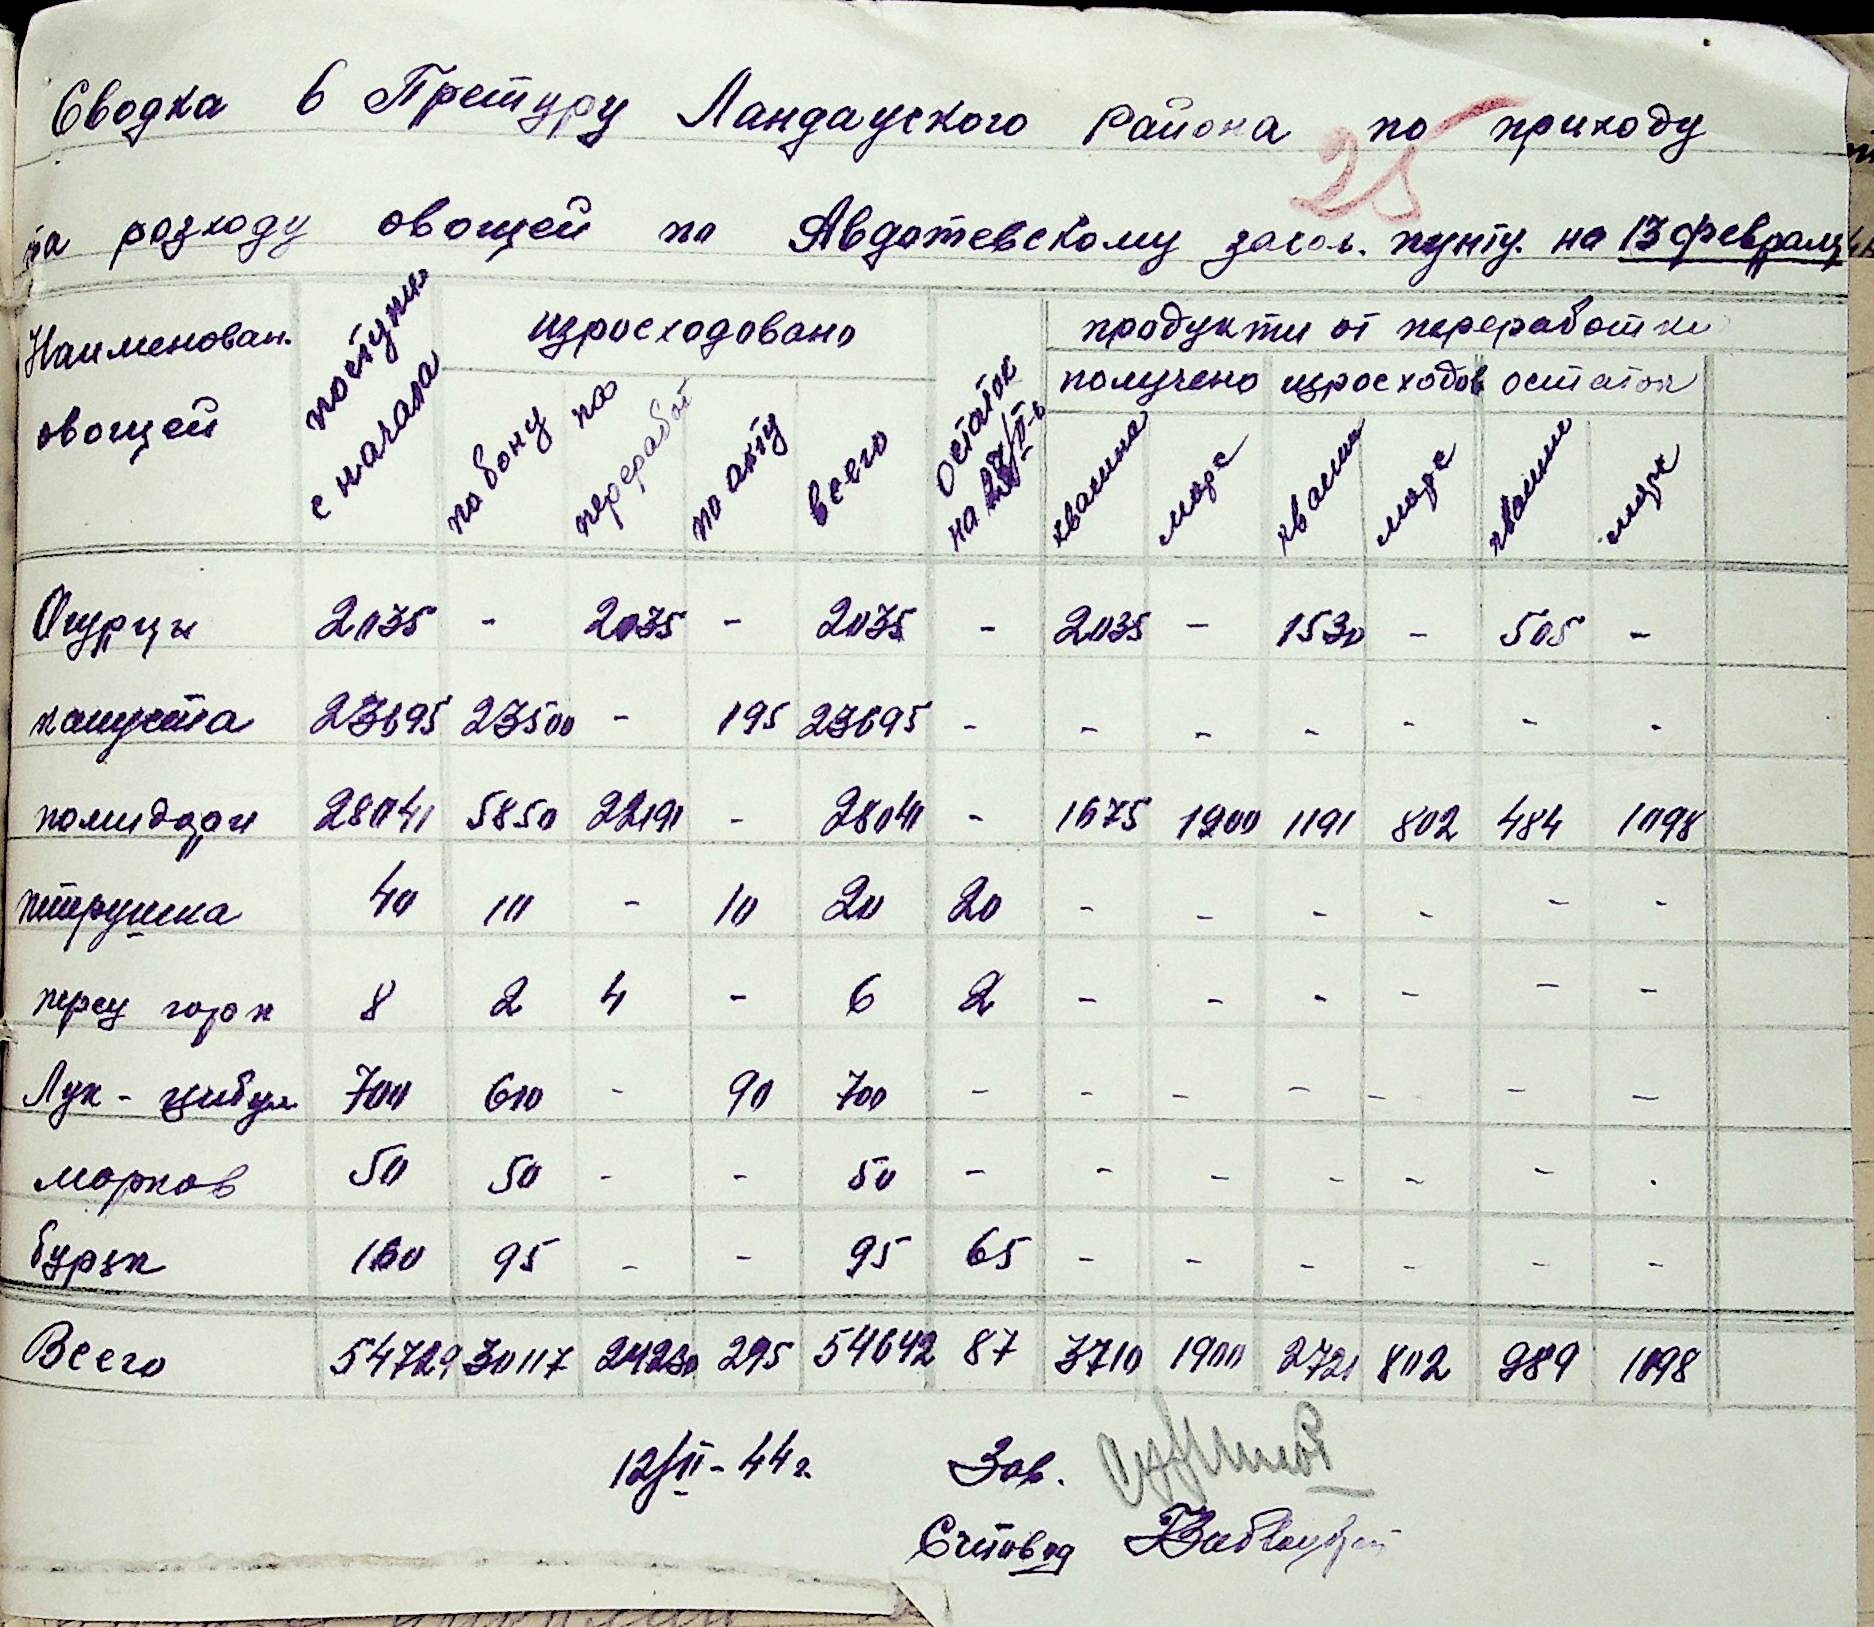 Сводка в Претуру Ландауского района по приходу
25
та розходу овощей по Авдотевскому загот. пункту. на 13 февраля
Наименован. овощей
поступил с начала
израсходовано
по бону
на переработ
по акту
всего
Остаток на II-
продукти от переработки
получено израсходов остаток
квашин морс квашин морс квашин морс
Огурцы 2035 - 2035 - 2035 - 2035 - 1530 - 505 -
капуста 23695 23500 - 195 23695 - - - - - - -
помидори 28041 5850 22191 - 28041 - 1675 1900 1191 802 484 1098
петрушка 40 10 - 10 20 20 - - - - - -
перец горк 8 2 4 - 6 2 - - - - - -
Лук - цибул 700 610 - 90 700 - - - - - - -
морков 50 50 - - 50 - - - - - - -
буряк 160 95 - - 95 65 - - - - - -
Всего 54729 30117 24230 295 54642 87 3710 1900 2721 802 989 1098
12/II - 44 г. Зав.
Счетовод